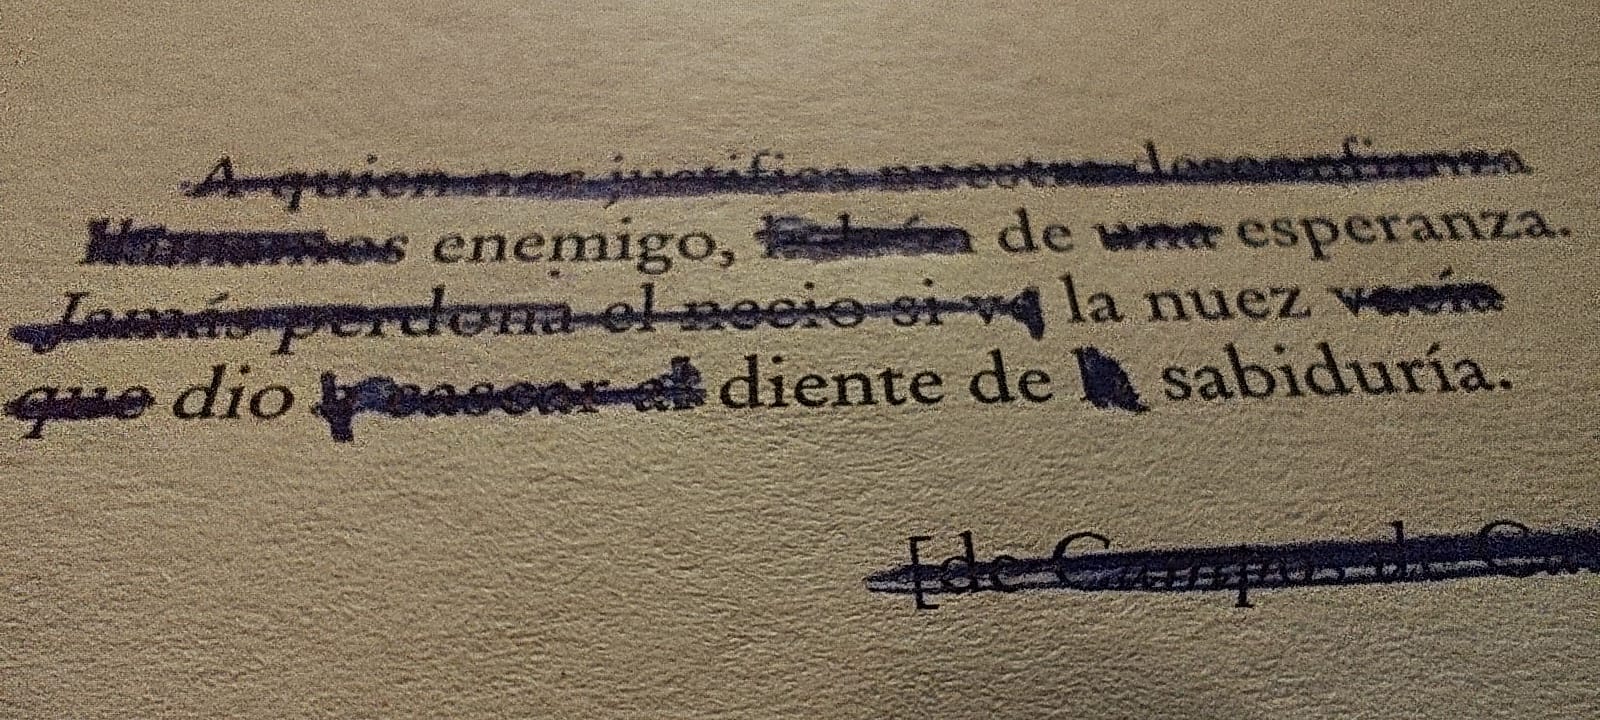 A quien nos justifica nuestra desconfianza
llamamos enemigo, ladrón de una esperanza.
Jamás perdona el necio si ve la nuez vacía
que dio a cascar al diente de la sabiduría.
[de Campos de Ca